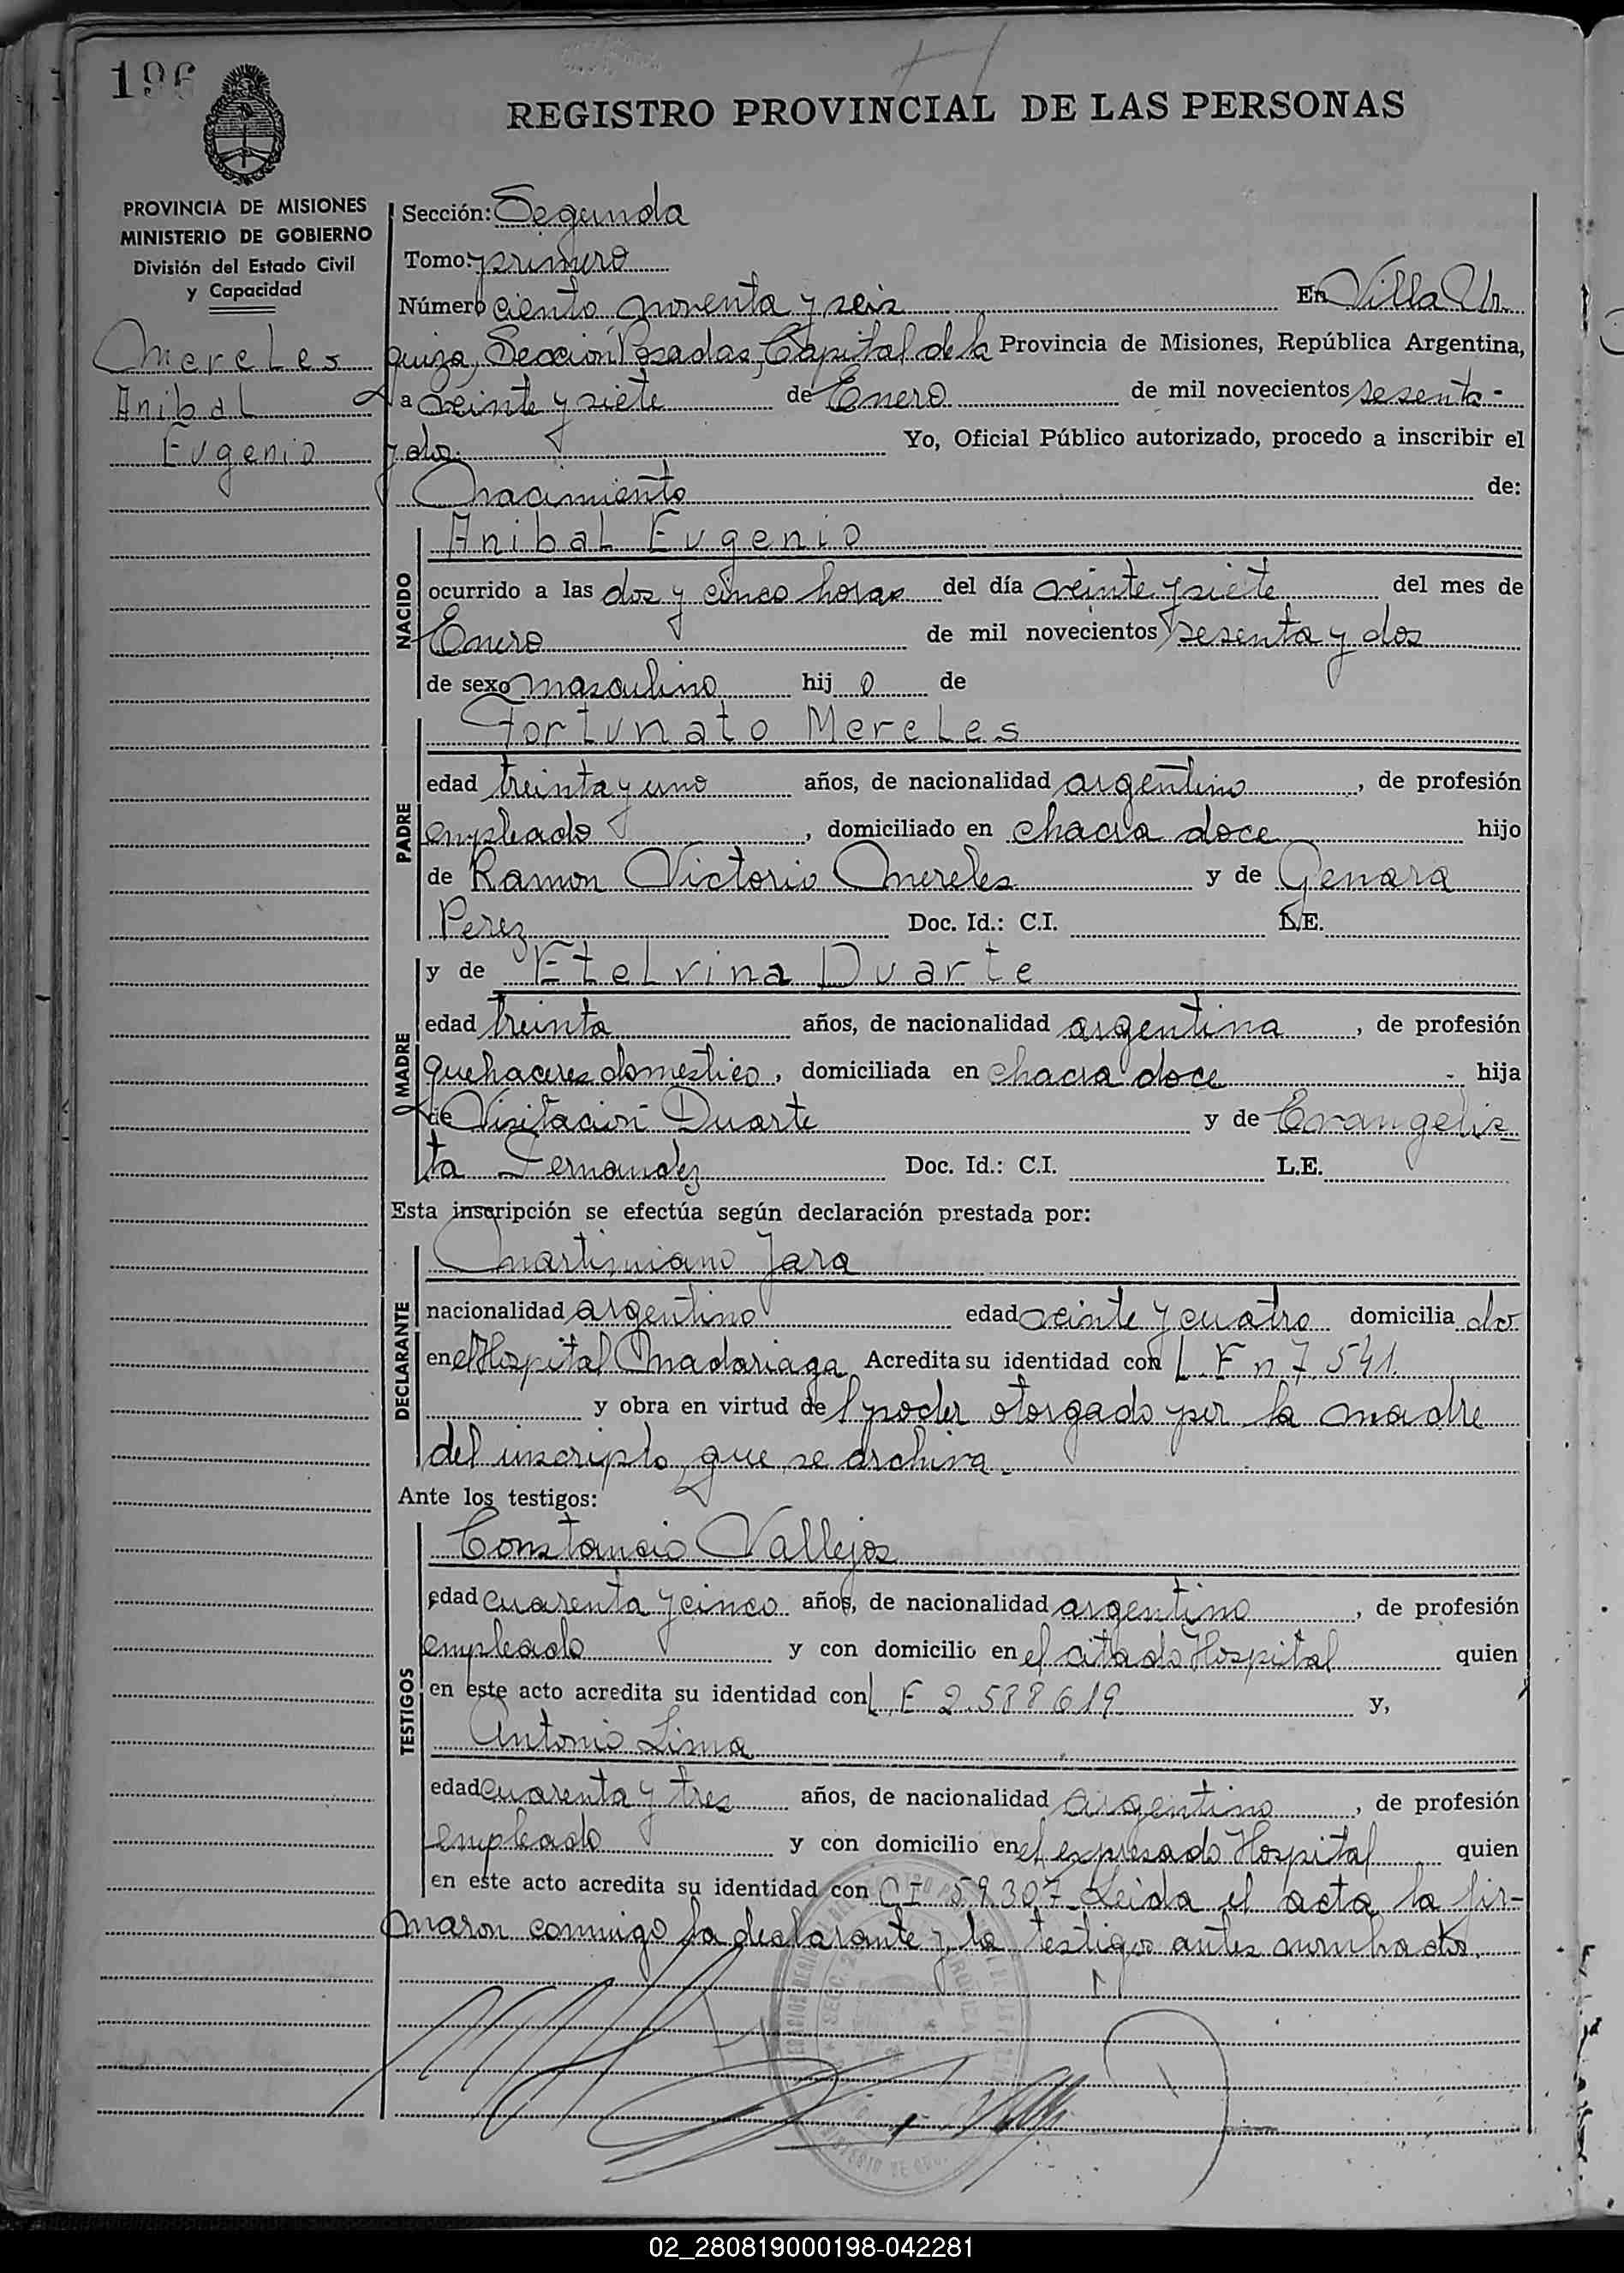 196
REGISTRO PROVINCIAL DE LAS PERSONAS
PROVINCIA DE MISIONES
MINISTERIO DE GOBIERNO
División del Estado Civil
y Capacidad
Mereles
Anibal
Eugenio
Sección: Segunda
Tomo: primero
Número ciento noventa y seis En Villa Ur
quiza, Sección Posadas, Capital de la Provincia de Misiones, República Argentina,
a veinte y siete de Enero de mil novecientos sesenta -
y dos. Yo, Oficial Público autorizado, procedo a inscribir el
nacimiento de:
NACIDO
Anibal Eugenio
ocurrido a las dos y cinco horas del día veinte y siete del mes de
Enero de mil novecientos sesenta y dos
de sexo masculino hij o de
PADRE
Fortunato Mereles
edad treinta y uno años, de nacionalidad argentino, de profesión
empleado, domiciliado en chacra doce hijo
de Ramon Victorio Mereles y de Genara
Perez Doc. Id.: C.I. L.E.
MADRE
y de Etelvina Duarte
edad treinta años, de nacionalidad argentina, de profesión
quehaceres domestico, domiciliada en chacra doce - hija
de Visitación Duarte y de Evangelis
ta Fernandez Doc. Id.: C.I. L.E.
Esta inscripción se efectúa según declaración prestada por:
DECLARANTE
Martiniano Jara
nacionalidad argentino edad veinte y cuatro domicilia do
en el Hospital Madariaga Acredita su identidad con L. E n 7.541.
y obra en virtud de l poder otorgado por la madre
del inscripto que se archiva.
Ante los testigos:
TESTIGOS
Constancio Vallejos
edad cuarenta y cinco años, de nacionalidad argentino, de profesión
empleado y con domicilio en el citado Hospital quien
en este acto acredita su identidad con L. E 2.588619 y,
Antonio Lima
edad cuarenta y tres años, de nacionalidad argentino, de profesión
empleado y con domicilio en el expresado Hospital quien
en este acto acredita su identidad con CI 59.307. Leida el acta la fir-
maron conmigo la declarante y los testigos antes nombrados.
02_280819000198-042281